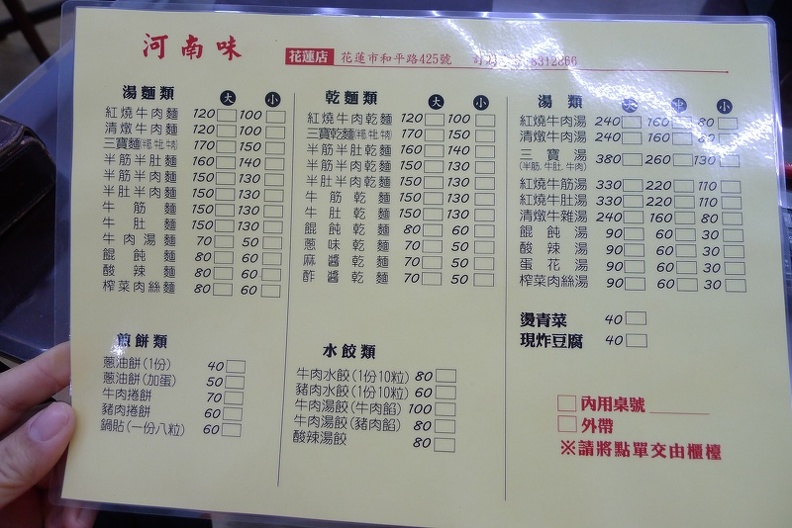 河南味
花蓮店 花蓮市和平路425號 8312866
湯麵類 大 小
紅燒牛肉麵 120 100
清燉牛肉麵 120 100
三寶麵 170 150
半筋半肚麵 160 140
半筋半肉麵 150 130
半肚半肉麵 150 130
牛筋麵 150 130
牛肚麵 150 130
牛肉湯麵 70 50
餛飩麵 80 60
酸辣麵 80 60
榨菜肉絲麵 80 60
煎餅類
蔥油餅(1份) 40
蔥油餅(加蛋) 50
牛肉捲餅 70
豬肉捲餅 60
鍋貼(一份八粒) 60
乾麵類 大 小
紅燒牛肉乾麵 120 100
三寶乾麵 170 150
半筋半肚乾麵 160 140
半筋半肉乾麵 150 130
半肚半肉乾麵 150 130
牛筋乾麵 150 130
牛肚乾麵 150 130
餛飩乾麵 80 60
蔥味乾麵 70 50
麻醬乾麵 70 50
酢醬乾麵 70 50
水餃類
牛肉水餃(1份10粒) 80
豬肉水餃(1份10粒) 60
牛肉湯餃(牛肉餡) 100
牛肉湯餃(豬肉餡) 80
酸辣湯餃 80
湯類 大 中 小
紅燒牛肉湯 240 160 80
清燉牛肉湯 240 160 80
三寶湯 380 260 130
(半筋,牛肚,牛肉)
紅燒牛筋湯 330 220 110
紅燒牛肚湯 330 220 110
清燉牛雜湯 240 160 80
餛飩湯 90 60 30
酸辣湯 90 60 30
蛋花湯 90 60 30
榨菜肉絲湯 90 60 30
燙青菜 40
現炸豆腐 40
內用桌號
外帶
※請將點單交由櫃檯